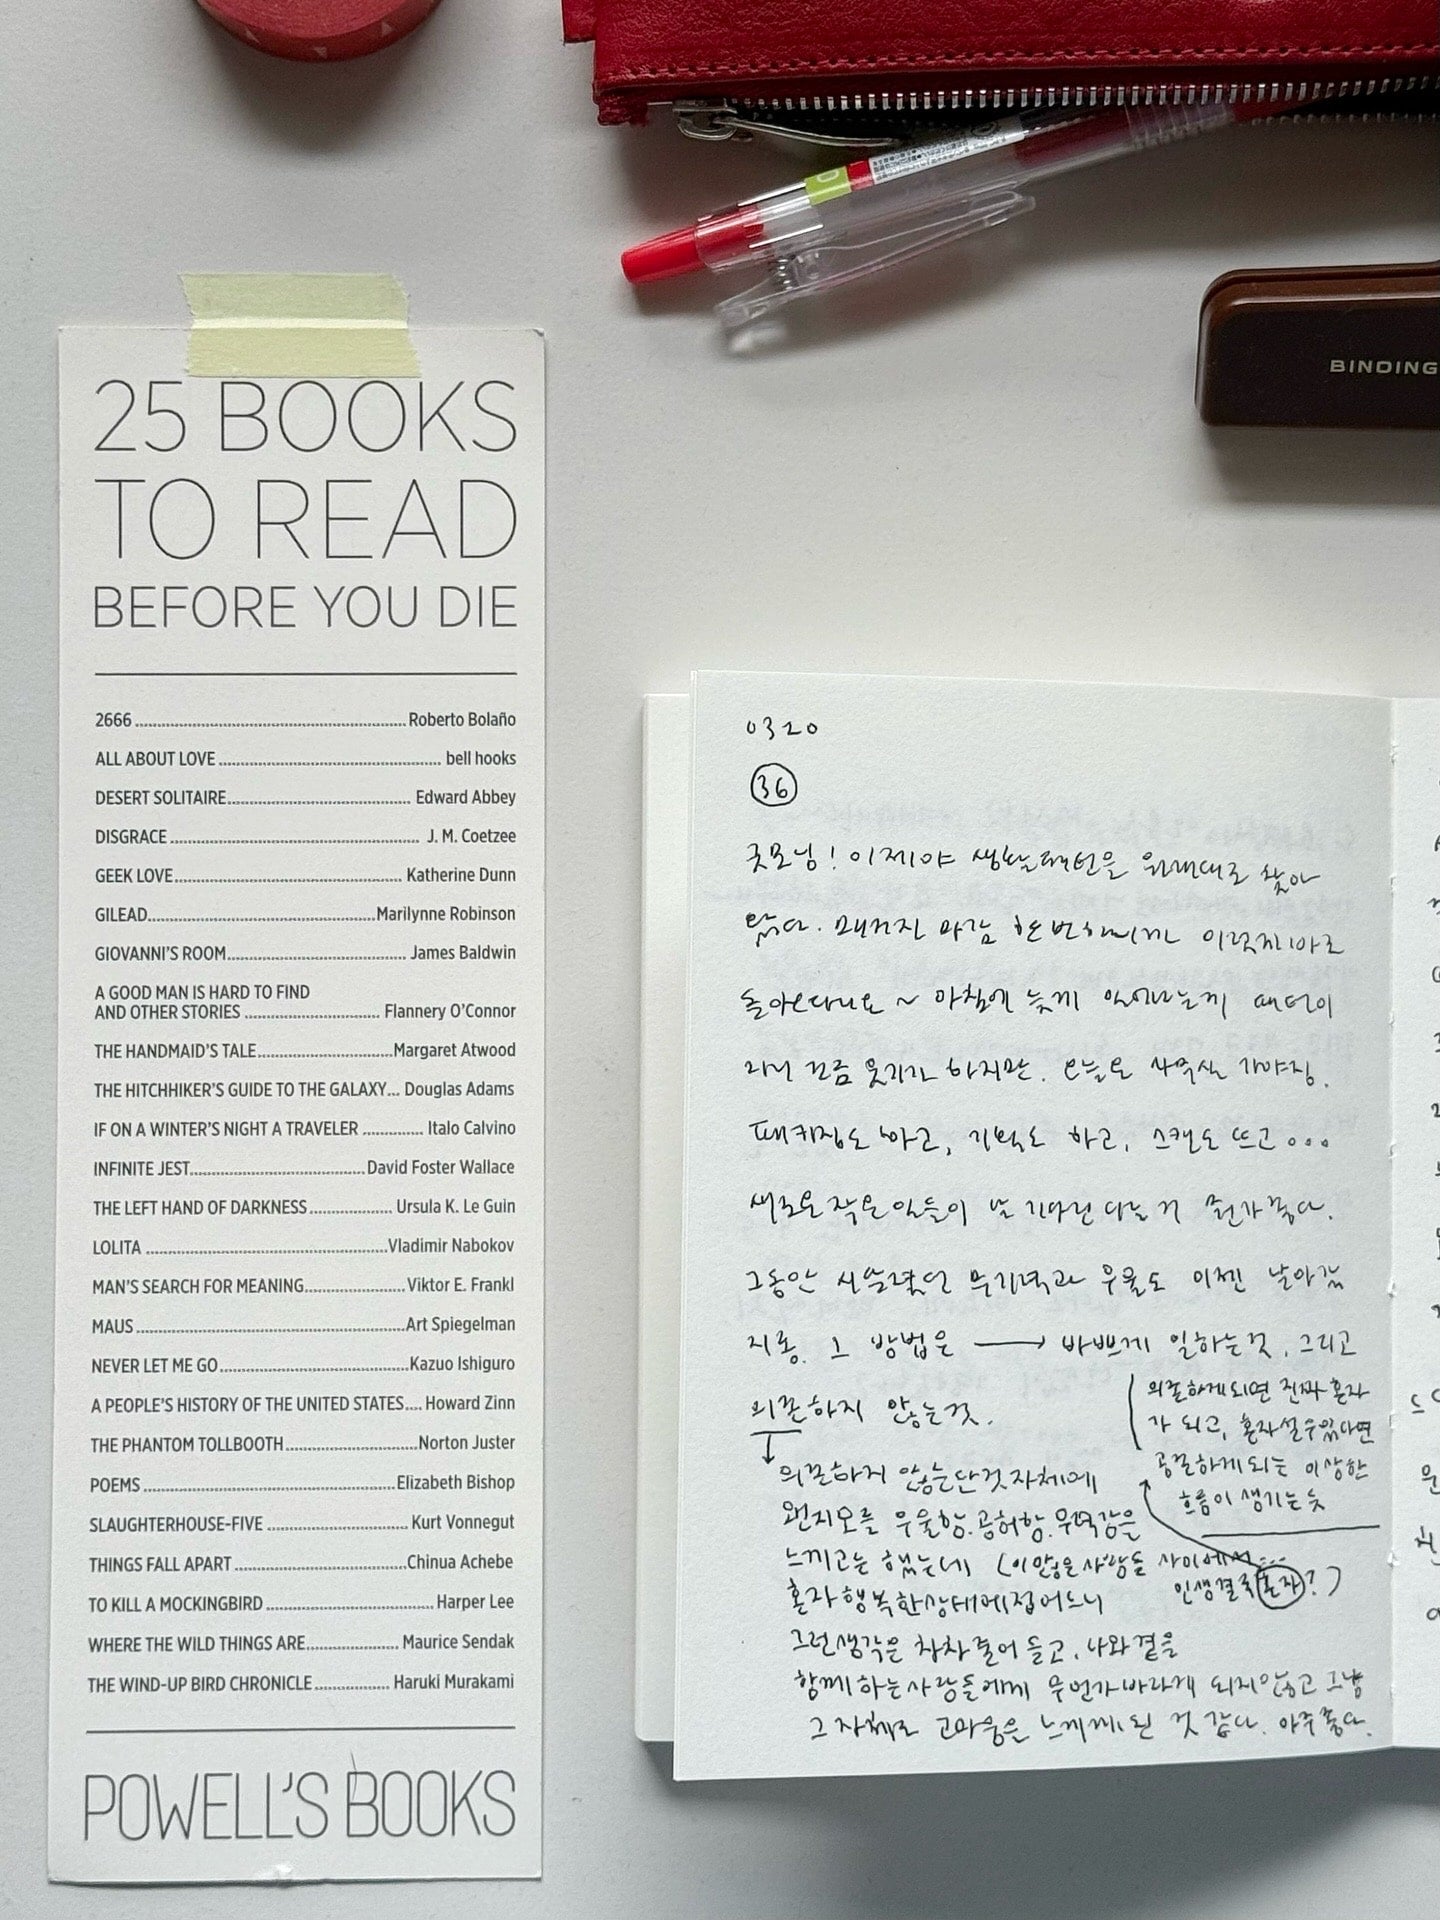 25 BOOKS
TO READ
BEFORE YOU DIE
2666 Roberto Bolaño
ALL ABOUT LOVE bell hooks
DESERT SOLITAIRE Edward Abbey
DISGRACE J. M. Coetzee
GEEK LOVE Katherine Dunn
GILEAD Marilynne Robinson
GIOVANNI'S ROOM James Baldwin
A GOOD MAN IS HARD TO FIND
AND OTHER STORIES Flannery O'Connor
THE HANDMAID'S TALE Margaret Atwood
THE HITCHHIKER'S GUIDE TO THE GALAXY... Douglas Adams
IF ON A WINTER'S NIGHT A TRAVELER Italo Calvino
INFINITE JEST David Foster Wallace
THE LEFT HAND OF DARKNESS Ursula K. Le Guin
LOLITA Vladimir Nabokov
MAN'S SEARCH FOR MEANING Viktor E. Frankl
MAUS Art Spiegelman
NEVER LET ME GO Kazuo Ishiguro
A PEOPLE'S HISTORY OF THE UNITED STATES.... Howard Zinn
THE PHANTOM TOLLBOOTH Norton Juster
POEMS Elizabeth Bishop
SLAUGHTERHOUSE-FIVE Kurt Vonnegut
THINGS FALL APART Chinua Achebe
TO KILL A MOCKINGBIRD Harper Lee
WHERE THE WILD THINGS ARE Maurice Sendak
THE WIND-UP BIRD CHRONICLE Haruki Murakami
POWELL'S BOOKS
BINDING
0320
36
굿모닝! 이제야 생활패턴을 원래대로 찾아
왔다. 매거진 마감 한 번 하니까 이렇게
돌아온다니요 ~ 아침에 늦게 일어나는게 패턴이
라니 조금 웃기긴 하지만. 오늘은 사무실 가야징.
패키징도 하고, 기획도 하고, 스캔도 뜨고...
새로운 작은 일들이 날 기다린다는 거
그동안 시달렸던 무기력과 우울도 이젠 날아감
지롱. 그 방법은 → 바쁘게 일하는것. 그리고
의존하지 않는것.
의존하게되면 진짜 혼자
가 되고, 혼자설수있다면
공존하게되는 이상한
흐름이 생기는 듯
의존하지 않는단것자체에
왠지모를 우울함.공허함.무력감을
느끼고는 했는데 (이 많은 사람들 사이에서...
인생결국 혼자?)
혼자 행복한상태에 접어드니
그런생각은 차차 줄어 들고, 나와 곁을
함께하는사람들에게 무언가바라게 되지않고 그냥
그 자체로 고마움은 느끼게된 것 같다. 아주좋다.